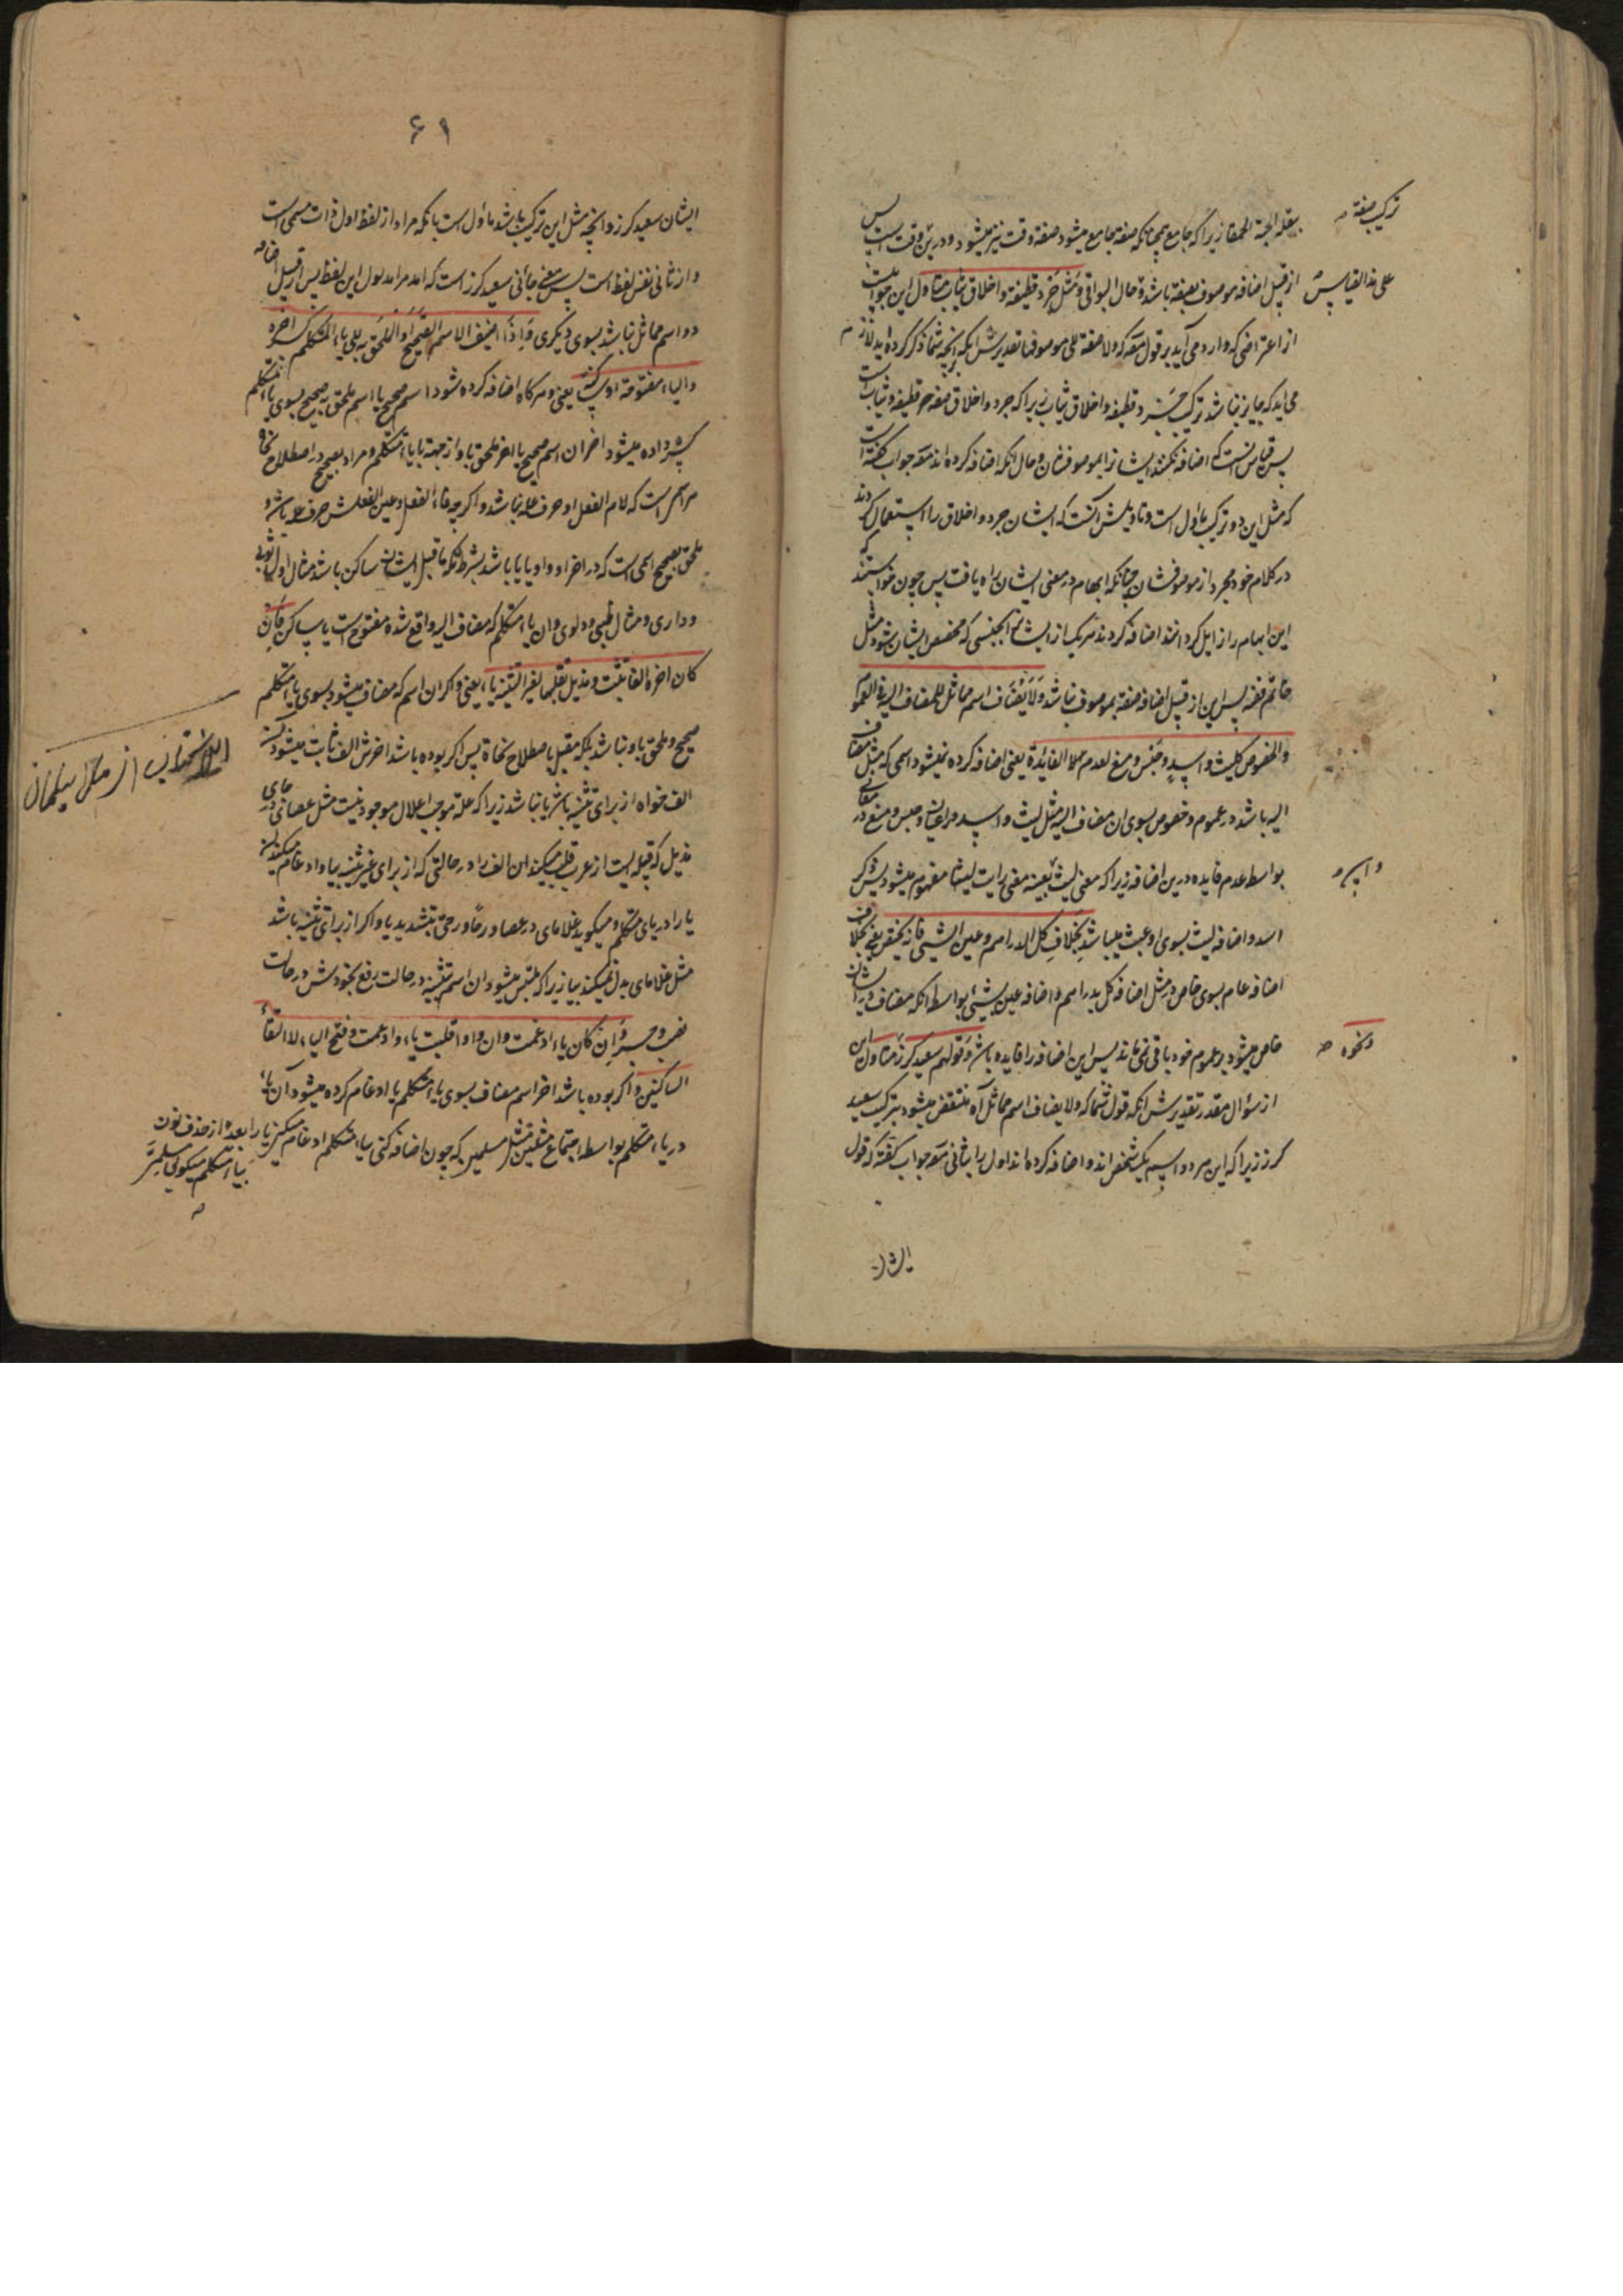 بقلة الحبة الحمقا زیرا که جامع همچنانکه صفة جامع میشود صفة وقت نیز میشود ودرین وقت است پس
ترکیب صفة صه
از قبیل اضافه موصوف بصفة باشد وحال البواقی ومثل جرد قطیفة واخلاق ثیاب متأول این جوابیست
علی هذا القیاس
از اعتراضی که وارد می آید بر قول مصه که ولا صفة الی موصوفها تقدیرش آنکه بر آنچه شما ذکر کرده اید لازم
می آید که جایز نباشد ترکیب جرد قطیفه واخلاق ثیاب زیرا که جرد واخلاق صفه قطیفه وثیاب است
پس قیاس آنست که اضافه نکنند ایشانرا بموصوفشان وحال آنکه اضافه کرده اند مصه جواب گفته است
که مثل این دو ترکیب مأول است وتاویلش آنست که ایشان جرد واخلاق را استعمال کردند
در کلام خود مجرد از موصوفشان چنانکه ابهام در معنی ایشان راه یافت پس چون خواستند که
این ابهام را زایل گردانند اضافه کردند هر یک از ایشان بجنسی که مخصص ایشان شود مثل
خاتم فضة پس این از قبیل اضافه صفة بموصوف نباشد ولا یضاف اسم مماثل للمضاف الیه فی العموم
والخصوص کلیث واسد وحبس ومنع لعدم الفایدة یعنی اضافه کرده نمیشود اسمی که مثل مضاف
الیه باشد در عموم وخصوص بسوی آن مضاف الیه مثل لیث واسد در اعیان وحبس ومنع در معانی
بواسطه عدم فایده درین اضافه زیرا که معنی لیث بعینه معنی رایت لیثا مفهوم میشود پس ذکر
واین صه
اسد واضافه لیث بسوی او عبث میباشد بخلاف کل الدراهم وعین الشیئ فانه یختص یعنی بخلاف
اضافه عام بسوی خاص در مثل اضافه کل بدراهم واضافه عین بشیئ بواسطه آنکه مضاف درایشان
خاص میشود بر عموم خود باقی نمی ماند پس این اضافه را فایده باشد وقولهم سعید کرز متاول این
ونحوه صه
از سؤال مقدر تقدیرش آنکه قول شما که ولا یضاف اسم مماثل آه منتقض میشود بترکیب سعید
کرز زیرا که این هر دو اسم یک شخص اند واضافه کرده اند اول را بثانی مصه جواب گفته که قول
ایشان
۶۱
ایشان سعید کرز وآنچه مثل این ترکیب باشد مأول است بآنکه مراد از لفظ اول ذات مسمی است
واز ثانی نفس لفظ است پس معنی جائنی سعید کرز است که آمد مرا مدلول این لفظ پس از قبیل اضافه
دو اسم مماثل نباشد بسوی دیگری واذا اضیف الاسم الصحیح او الملحق به الی یاء المتکلم کسر اخره
والیاء مفتوحة او ساکنة یعنی وهر گاه اضافه کرده شود اسم صحیح یا اسم ملحق به صحیح بسوی یاء متکلم
کسره داده میشود اخر آن اسم صحیح یا اخر ملحق باو از جهة یاء متکلم ومراد بصحیح در اصطلاح نحاة
هر اسمی است که لام الفعل او حرف عله نباشد واگر چه فاء الفعل وعین الفعلش حرف عله باشد و
ملحق بصحیح اسمی است که در اخر او واو یا یا باشد بشرط آنکه ماقبل ایشان ساکن باشد مثال اول ثوبی
وداری ومثال ظبیی ودلوی وان یاء متکلم که مضاف الیه واقع شده مفتوح است یا ساکن فان
کان اخره الفا تثبت وهذیل تقلبها لغیر التثنیة یاء یعنی واگر آن اسم که مضاف میشود بسوی یاء متکلم
صحیح وملحق باو نباشد بلکه معتل باصطلاح نحاة پس اگر بوده باشد اخرش الف ثابت میشود آن
الف خواه از برای تثنیه باشد یا نباشد زیرا که علة موجب اعلال موجود نیست مثل عصای ورحای
هذیل که قبیله ایست از عرب قلب میکنند این الف را در حالتی که از برای غیر تثنیه بیا وادغام میکنند
یا را در یای متکلم ومیگوید غلامای در عصا ورحا ورحی بتشدید یا واگر از برای تثنیه باشد
مثل غلامای بدل نمیکنند بیا زیرا که ملتبس میشود آن اسم تثنیه در حالت رفع بخودش در حالت
نصب وجر وان کان یاء ادغمت وان واوا قلبت یاء وادغمت وفتح الیاء لالتقاء
الساکنین واگر بوده باشد اخر اسم مضاف بسوی یاء متکلم یا ادغام کرده میشود آن یاء
در یاء متکلم بواسطه اجتماع مثلین مثل مسلمین که چون اضافه کنی بیاء متکلم ادغام میکنی یا را بعد از حذف نون
بیاء متکلم میگوئی مسلمیّ
صه